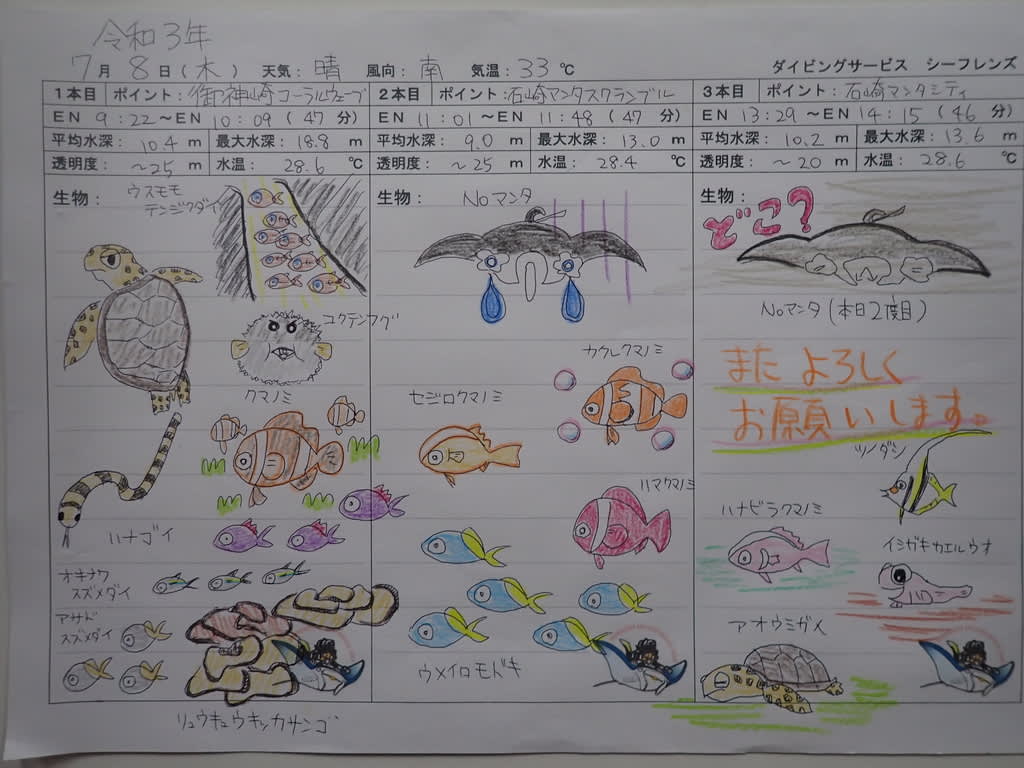 令和3年
7月 8日(木) 天気:晴 風向:南 気温:33℃ ダイビングサービス シーフレンズ
1本目 ポイント:御神崎コーラルウェーブ
EN 9:22～EN 10:09 (47分)
平均水深: 10.4 m 最大水深: 18.8 m
透明度: ～25 m 水温: 28.6 ℃
生物:
ウスモモ
テンジクダイ
コクテンフグ
クマノミ
ハナゴイ
オキナワ
スズメダイ
アサド
スズメダイ
リュウキュウキッカサンゴ
2本目 ポイント:石崎マンタスクランブル
EN 11:01～EN 11:48 (47分)
平均水深: 9.0 m 最大水深: 13.0 m
透明度: ～25 m 水温: 28.4 ℃
生物:
Noマンタ
カクレクマノミ
セジロクマノミ
ハマクマノミ
ウメイロモドキ
3本目 ポイント:石崎マンタシティ
EN 13:29～EN 14:15 (46分)
平均水深: 10.2 m 最大水深: 13.6 m
透明度: ～20 m 水温: 28.6 ℃
生物:
どこ?
Noマンタ(本日2度目)
また よろしく
お願いします。
ツノダシ
ハナビラクマノミ
イシガキカエルウオ
アオウミガメ